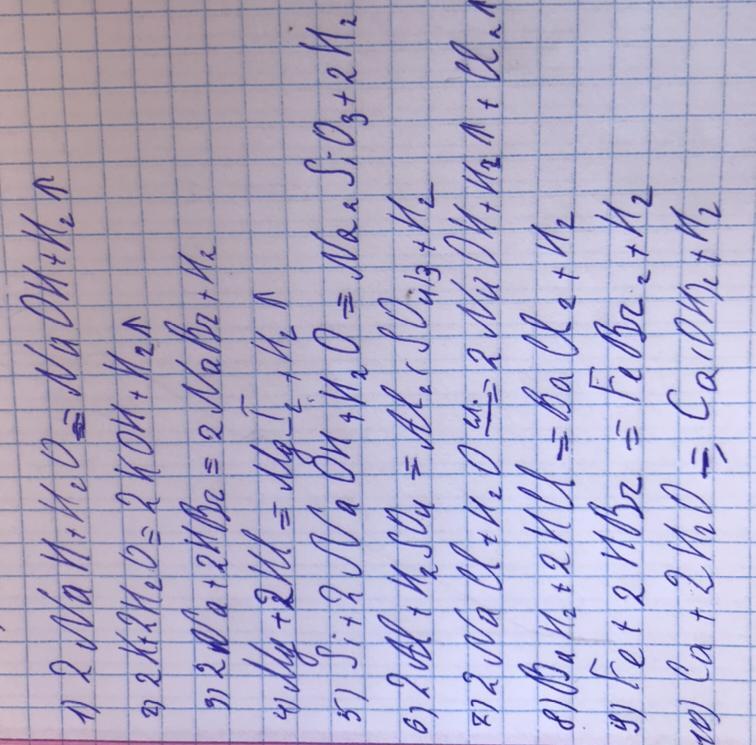 1) 2NaH + H₂O = NaOH + H₂↑
2) 2K + 2H₂O = 2KOH + H₂↑
3) 2Na + 2HBr = 2NaBr + H₂
4) Mg + 2HI = MgI₂ + H₂↑
5) Si + 2NaOH + H₂O = Na₂SiO₃ + 2H₂
6) 2Al + H₂SO₄ = Al₂(SO₄)₃ + H₂
7) 2NaCl + H₂O = 2NaOH + H₂↑ + Cl₂↑
8) BaH₂ + 2HCl = BaCl₂ + H₂
9) Fe + 2HBr = FeBr₂ + H₂
10) Ca + 2H₂O = Ca(OH)₂ + H₂